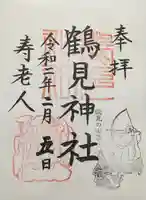 奉拝
鶴見神社
令和二年二月五日
寿老人